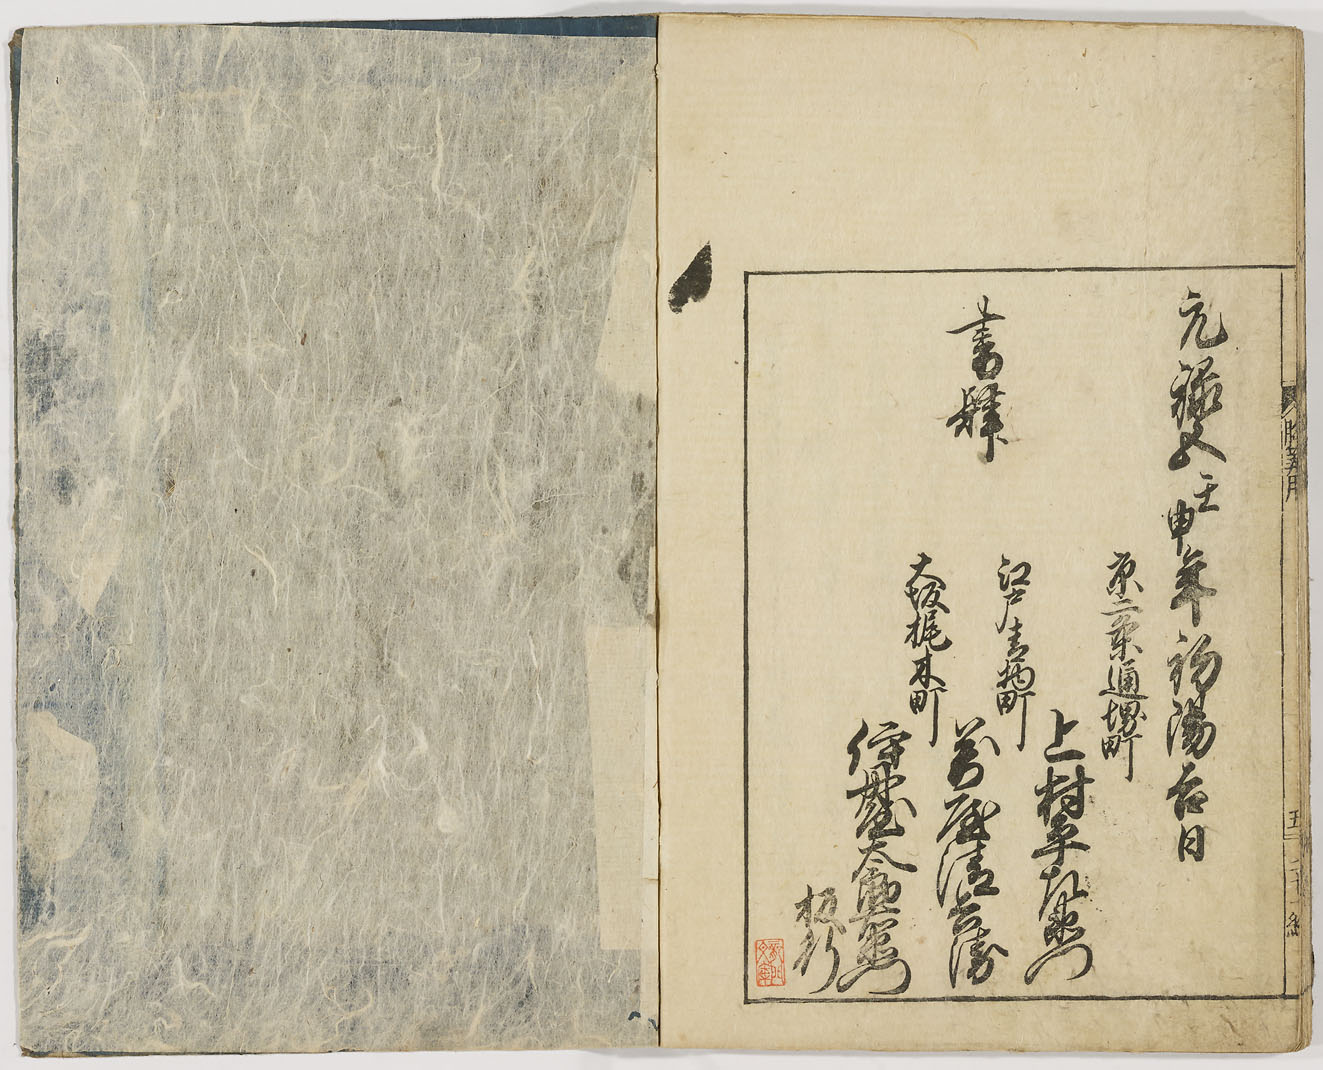 元禄五壬申年初陽吉日
京二条通堺町
上村平左衛門
江戸青物町
書肆
萬屋清兵衛
大坂梶木町
伊丹屋太郎右衛門
板行
胸算用
五